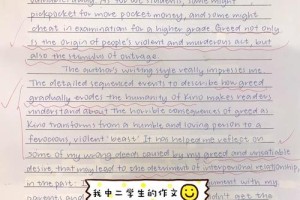 pickpocket for more pocket money, and some might
cheat in examination for a higher grade. Greed not only
is the origin of people's violent and murderous act, but
also the stimulus of outrage.
The author's writing style really impresses me.
The detailed sequenced events to describe how greed
gradually erodes the humanity of Kino makes readers
understand about the horrible consequences of greed as
Kino transforms from a humble and loving person to a
ferocious, violent 'beast'. It has helped me reflect on
some of my wrong deeds caused by my greed and insatiable
desire, that may lead to the deterrent of interpersonal relationship,
in the part. I
ment with my
parents and
didn't get the
我中二学生的作文